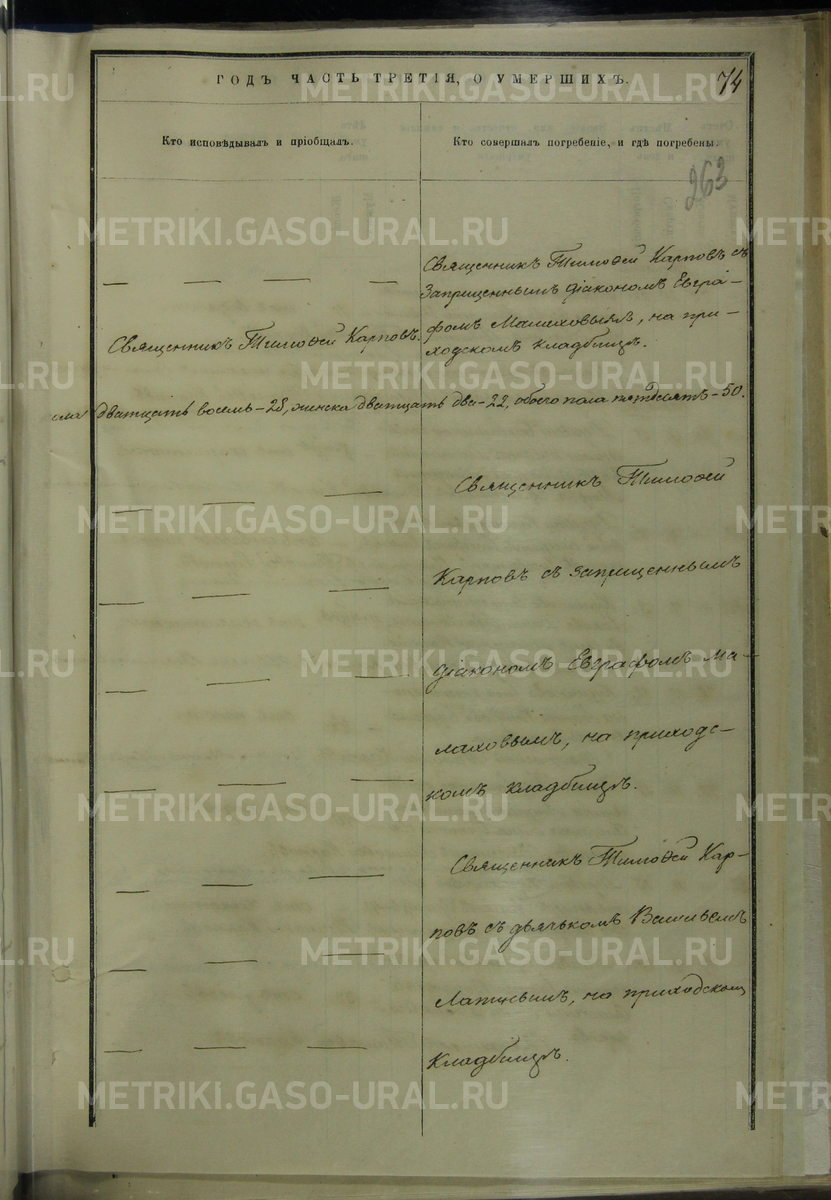 ГОДЪ ЧАСТЬ ТРЕТІЯ, О УМЕРШИХЪ.
74
Кто исповѣдывалъ и пріобщалъ.
Кто совершалъ погребеніе, и гдѣ погребены.
263
Священникъ Тимоѳей Карповъ съ
Запрещеннымъ діакономъ Евгра-
фомъ Малаховымъ, на при-
ходскомъ кладбищѣ.
Священникъ Тимоѳей Карповъ.
дватцать восемь - 28, женска дватцать два - 22, обоего пола пятдесятъ - 50.
Священникъ Тимоѳей
Карповъ съ запрещеннымъ
діакономъ Евграфомъ Ма-
лаховымъ, на приходс-
комъ кладбищѣ.
Священникъ Тимоѳей Кар-
повъ съ дьячькомъ Васильемъ
на приходскомъ
кладбищѣ.
METRIKI.GASO-URAL.RU